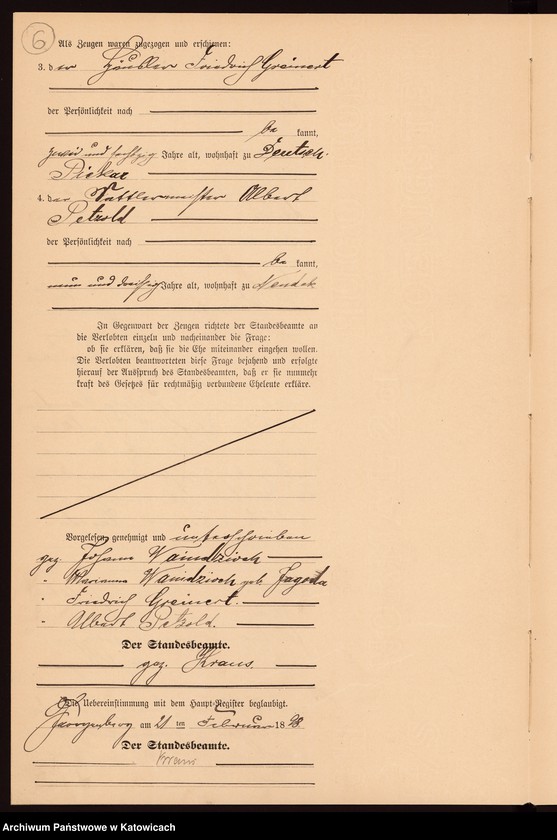 6
Als Zeugen waren zugezogen und erschienen:
3. der Häusler Friedrich Greinert
der Persönlichkeit nach
be kannt,
zwei und sechzig Jahre alt, wohnhaft zu Deutsch-
Piekar
4. der Sattlermeister Albert
Petzold
der Persönlichkeit nach
be kannt,
neun und dreißig Jahre alt, wohnhaft zu Neudek
In Gegenwart der Zeugen richtete der Standesbeamte an
die Verlobten einzeln und nacheinander die Frage:
ob sie erklären, daß sie die Ehe miteinander eingehen wollen.
Die Verlobten beantworteten diese Frage bejahend und erfolgte
hierauf der Ausspruch des Standesbeamten, daß er sie nunmehr
kraft des Gesetzes für rechtmäßig verbundene Eheleute erkläre.
Vorgelesen, genehmigt und unterschrieben
gez. Johann Wanidzioch
" Marianna Wanidzioch geb. Jagoda
" Friedrich Greinert.
" Albert Petzold.
Der Standesbeamte.
gez. Kraus.
Die Uebereinstimmung mit dem Haupt-Register beglaubigt.
Georgenberg am 21 ten Februar 1898
Der Standesbeamte.
Kraus
Archiwum Państwowe w Katowicach